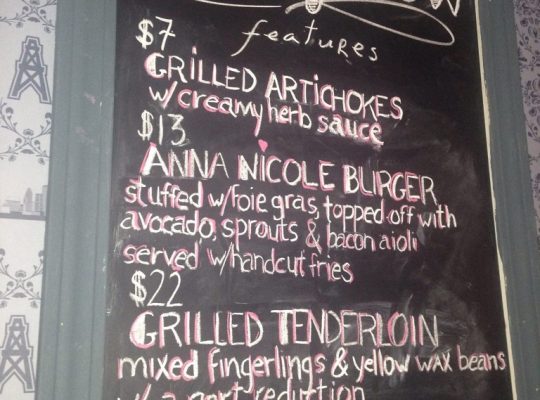 $7 features
GRILLED ARTICHOKES
w/creamy herb sauce
$13
ANNA NICOLE BURGER
stuffed w/foie gras, topped off with
avocado, sprouts & bacon aioli
served w/handcut fries
$22
GRILLED TENDERLOIN
mixed fingerlings & yellow wax beans
w/ a port reduction